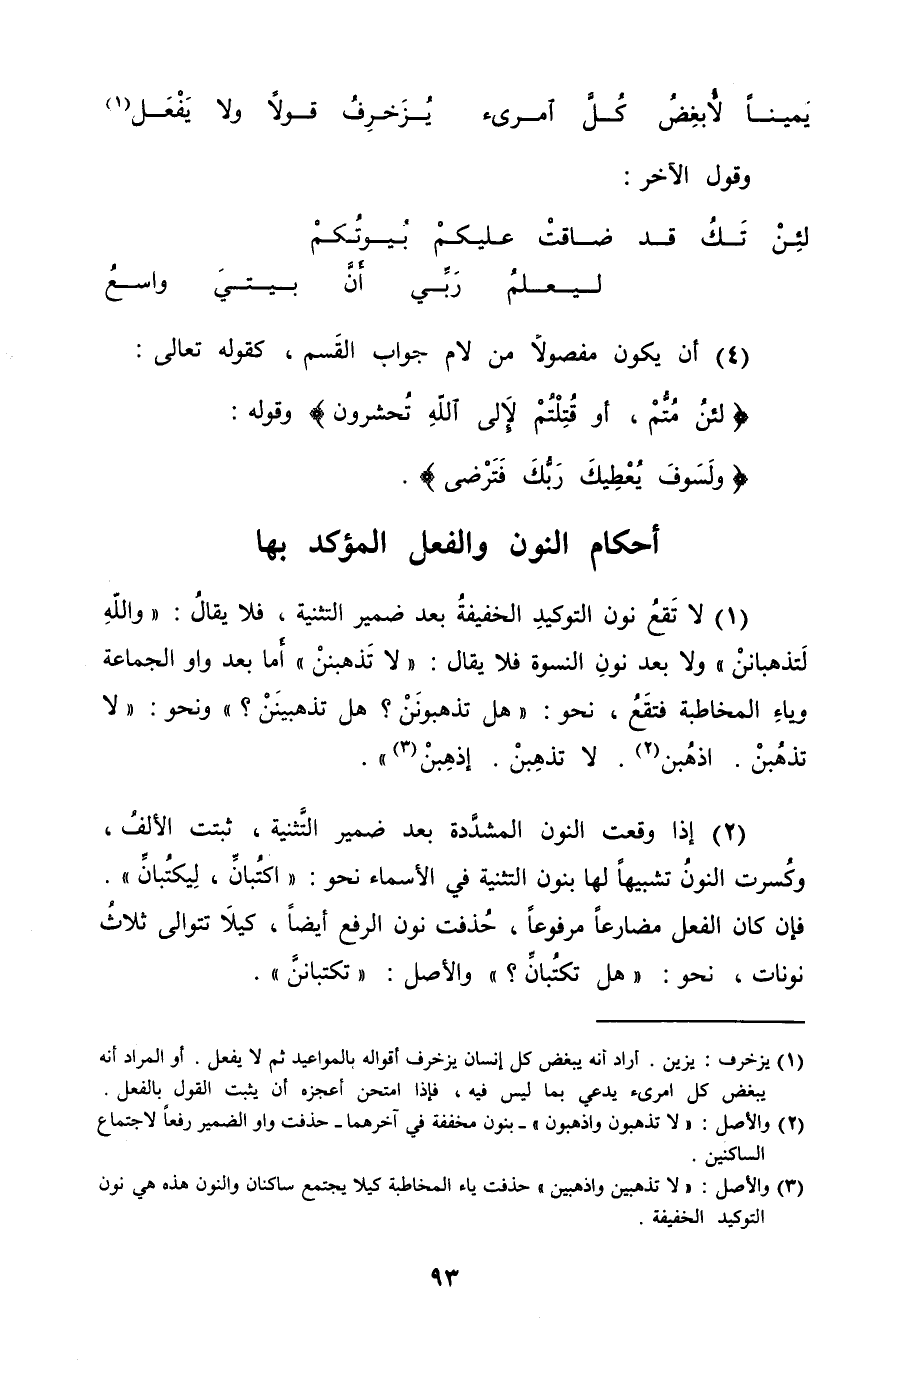 يَميناً لَأُبغِضُ كُلَّ آمرىء يُزَخرِفُ قولاً ولا يَفْعَل(١)
وقول الآخر :
لئِنْ تَكُ قد ضاقتْ عليكمْ بُيوتُكمْ
ليعلمُ رَبِّي أَنَّ بيتيَ واسعُ
(٤) أن يكون مفصولاً من لام جواب القَسم ، كقوله تعالى :
﴿ لئنُ مُتُّمْ ، أو قُتِلْتُمْ لَإلى ٱللّهِ تُحشرون ﴾ وقوله :
﴿ ولَسَوفَ يُعْطِيكَ رَبُّكَ فَتَرْضى ﴾ .
أحكام النون والفعل المؤكد بها
(١) لا تَقعُ نون التوكيدِ الخفيفةُ بعد ضمير التثنية ، فلا يقالُ : « واللّهِ
لَتذهبانِنْ » ولا بعد نونِ النسوة فلا يقال : « لا تَذهبننْ » أما بعد واو الجماعة
وياءِ المخاطبة فتقَعُ ، نحو : « هل تذهبونَنْ ؟ هل تذهبينَنْ ؟ » ونحو : « لا
تذهُبنْ . اذهُبن(٢) . لا تذهبِنْ . إذهبِنْ(٣) » .
(٢) إذا وقعت النون المشدَّدة بعد ضمير التَّثنية ، ثبتت الألفُ ،
وكُسرت النونُ تشبيهاً لها بنون التثنية في الأسماء نحو : « اكتُبانِّ ، لِيكتُبانِّ » .
فإن كان الفعل مضارعاً مرفوعاً ، حُذفت نون الرفع أيضاً ، كيلَا تتوالى ثلاثُ
نونات ، نحو : « هل تكتُبانِّ ؟ » والأصل : « تكتبانِنَّ » .
(١) يزخرف : يزين . أراد أنه يبغض كل إنسان يزخرف أقواله بالمواعيد ثم لا يفعل . أو المراد أنه
يبغض كل امرىء يدعي بما ليس فيه ، فإذا امتحن أعجزه أن يثبت القول بالفعل .
(٢) والأصل : « لا تذهبون واذهبون » ـ بنون مخففة في آخرهما ـ حذفت واو الضمير رفعاً لاجتماع
الساكنين .
(٣) والأصل : « لا تذهبين واذهبين » حذفت ياء المخاطبة كيلا يجتمع ساكنان والنون هذه هي نون
التوكيد الخفيفة .
٩٣